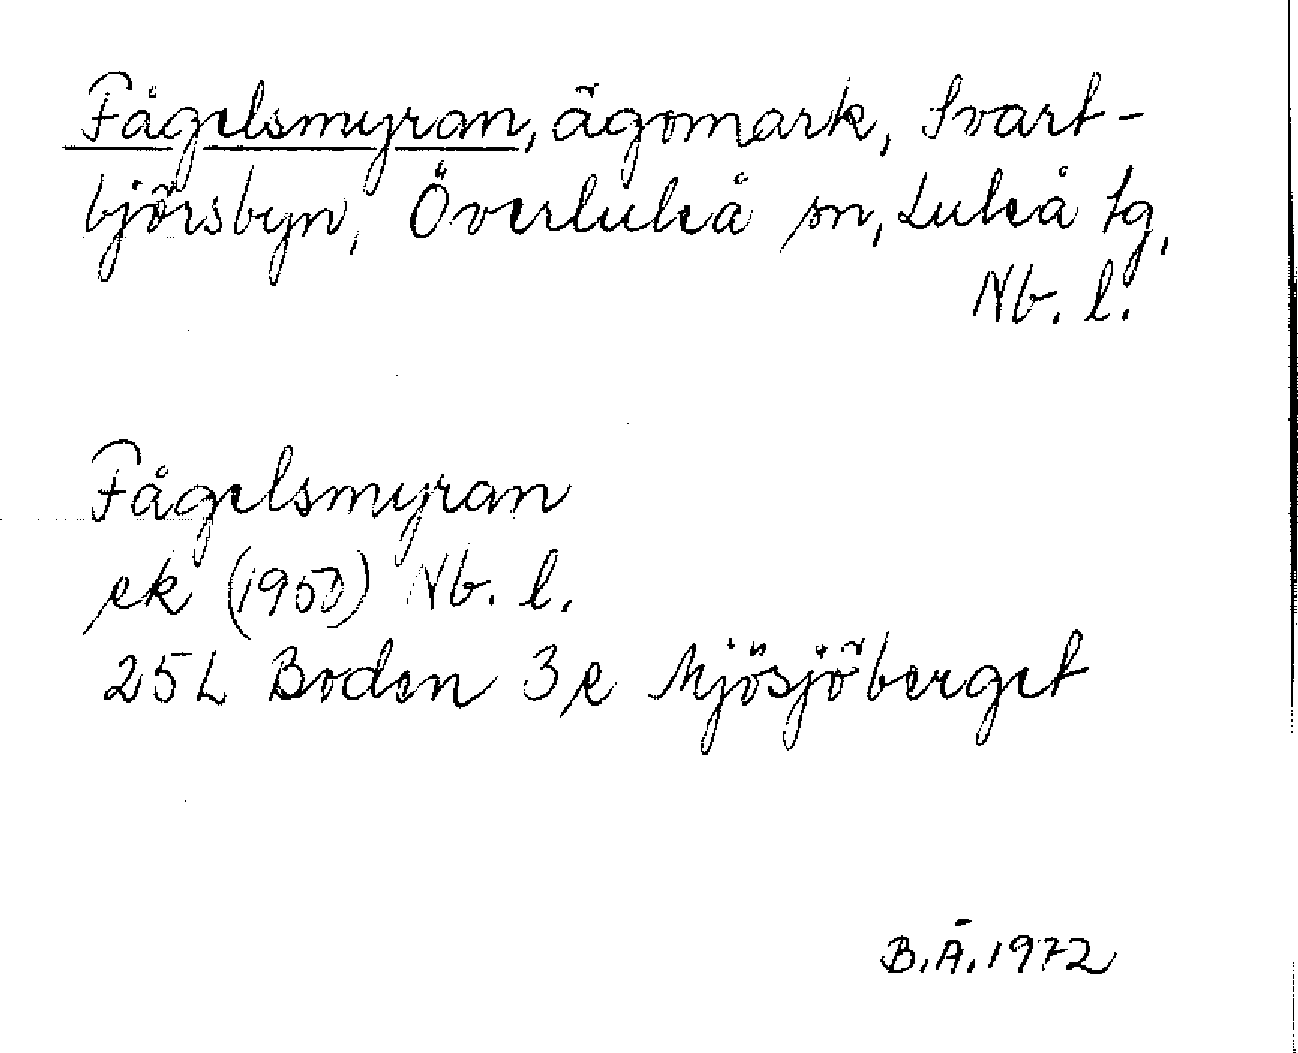 Fågelsmyran, ägomark, Svart-
björsbyn, Överluleå sn, Luleå tg,
Nb. l.
Fågelsmyran
ek (1950) Nb. l.
25L Boden 3e Mjösjöberget
B.Ä.1972